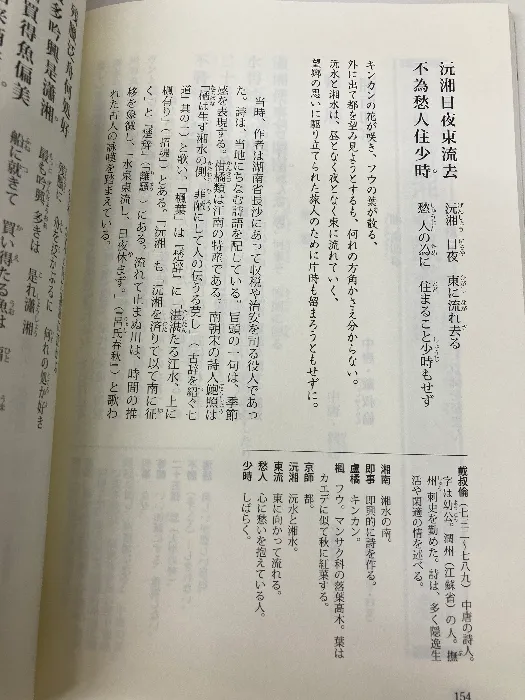 沅湘日夜東流去
不為愁人住少時
沅湘 日夜 東に流れ去る
愁人の為に 住まること少時もせず
キンカンの花が咲き、フウの葉が散る、
外に出て都を望み見ようとするも、何れの方角かさえ分からない。
沅水と湘水は、昼となく夜となく東に流れていく、
望郷の思いに駆り立てられた旅人のために片時も留まろうともせずに。
当時、作者は湖南省長沙にあって収税や治安を司る役人であっ
た。詩は、当地にちなむ詩語を配している。冒頭の一句は、季節
感を表現する。柑橘類は江南の特産である。南朝宋の詩人鮑照は
「橘は生ず湘水の側、菲陋にして人の伝うる莫し」(「古辞を紹ぐ七
道其の一」)と歌い、「楓葉」は『楚辞』に「湛湛たる江水、上に
楓有り」(「招魂」)とある。「沅湘」も「沅湘を済りて以て南に征
く」と『楚辞』(「離騒」)にある。流れて止まぬ川は、時間の推
移を象徴し、「水泉東流し、日夜休まず。」(『呂氏春秋』)と歌わ
れた古人の詠嘆を踏まえている。
戴叔倫(七三二〜七八九) 中唐の詩人。
字は幼公。潤州(江蘇省)の人。撫
州刺史を勤めた。詩は、多く隠逸生
活や閑適の情を述べる。
湘南 湘水の南。
即事 即興的に詩を作る。
盧橘 キンカン。
楓 フウ。マンサク科の落葉高木。葉は
カエデに似て秋に紅葉する。
京師 都。
沅湘 沅水と湘水。
東流 東に向かって流れる。
愁人 心に愁いを抱えている人。
少時 しばらく。
154
多吟興是瀟湘
買得魚偏美
何れの処が好き
多きは 是れ瀟湘
船に就きて 買い得たる魚は